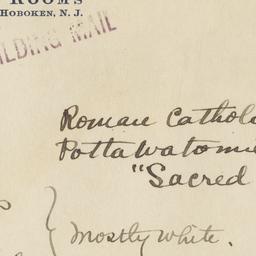 ROOMS
HOBOKEN, N. J.
ILDING MAIL
Roman Catholi
Pottawatomie
"Sacred
Mostly white.